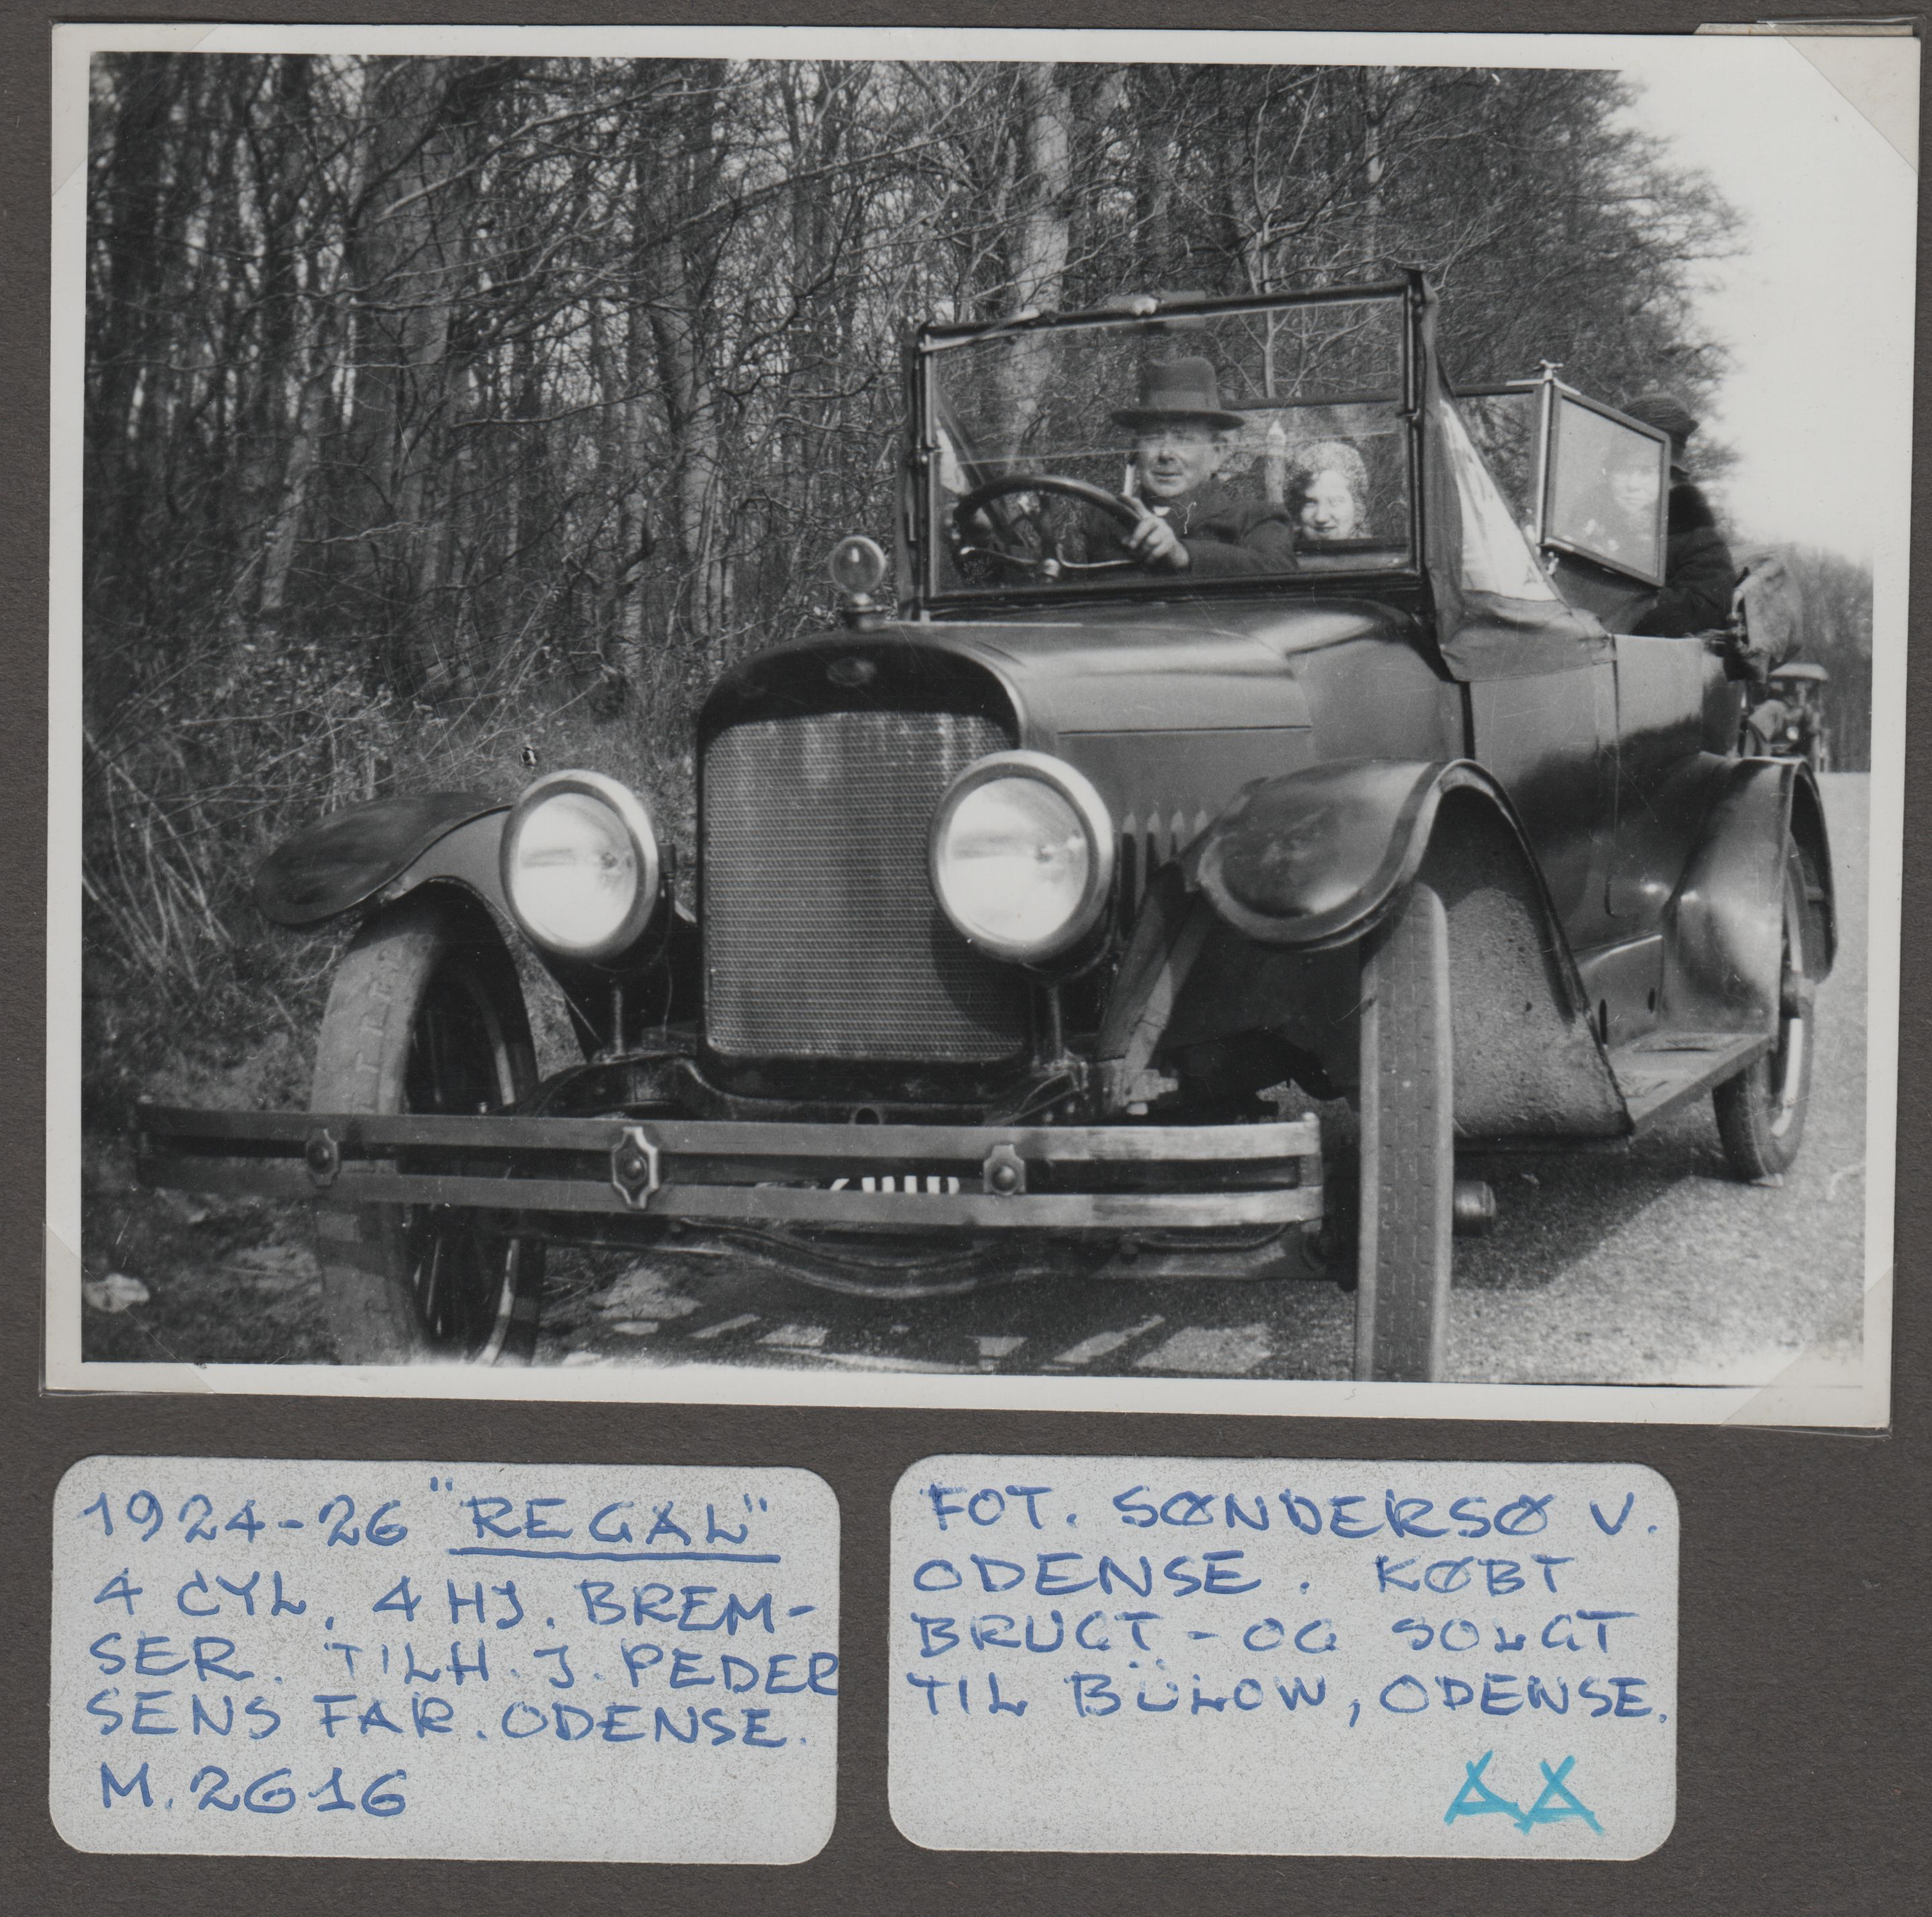 1924-26 "REGAL"
4 CYL. 4 HJ. BREM-
SER. TILH. J. PEDER
SENS FAR. ODENSE.
M. 2616
FOT. SØNDERSØ V.
ODENSE. KØBT
BRUGT - OG SOLGT
TIL BÜLOW, ODENSE.
AA